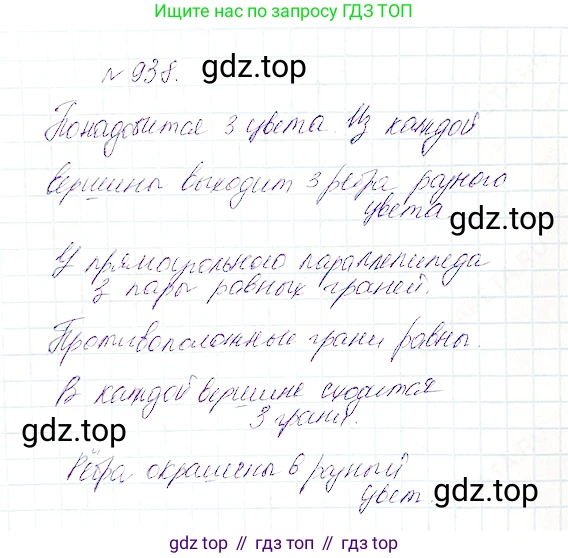 Ищите нас по запросу ГДЗ ТОП
№ 938.
gdz.top
Понадобится 3 цвета. Из каждой
вершины выходит 3 ребра разного
цвета
gdz.top
У прямоугольного параллепипеда
3 пары равных граней.
Противоположные грани равны.
В каждой вершине сходится
3 грани.
gdz.top
Рёбра окрашены в разный
цвет.
gdz.top
gdz.top // гдз.топ // gdz.top